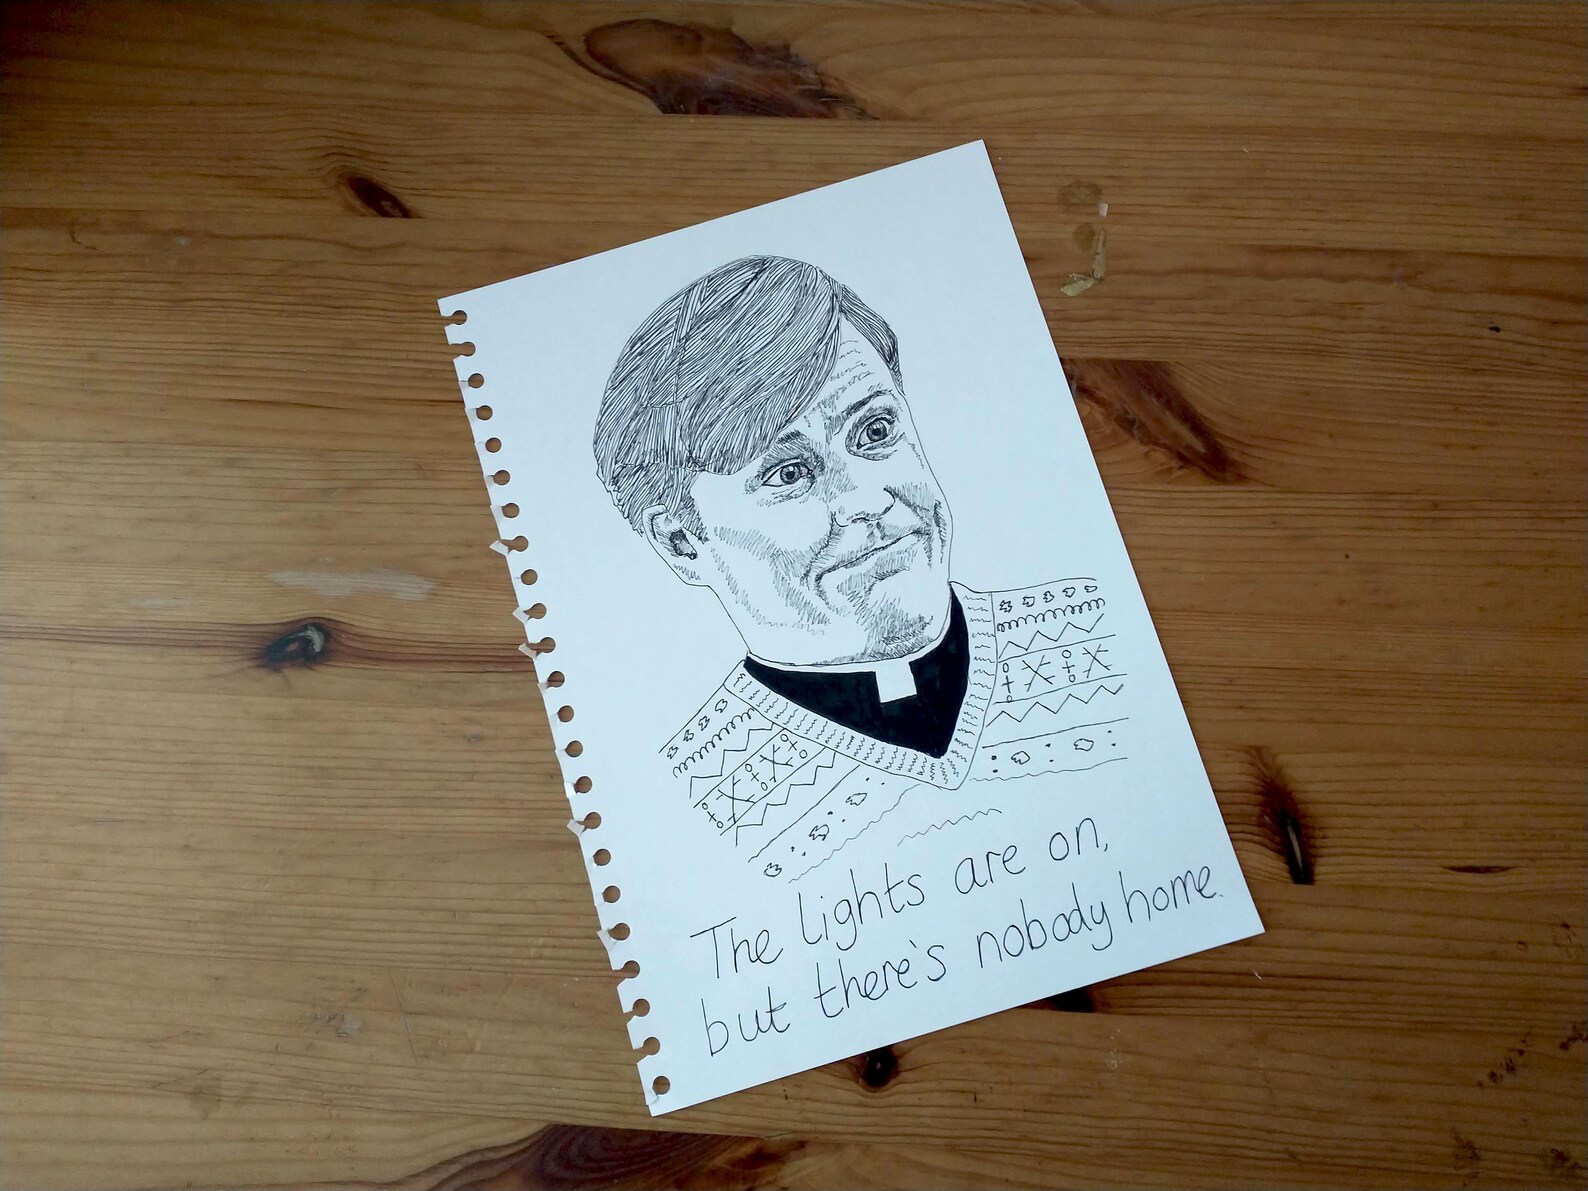 The lights are on,
but there's nobody home.